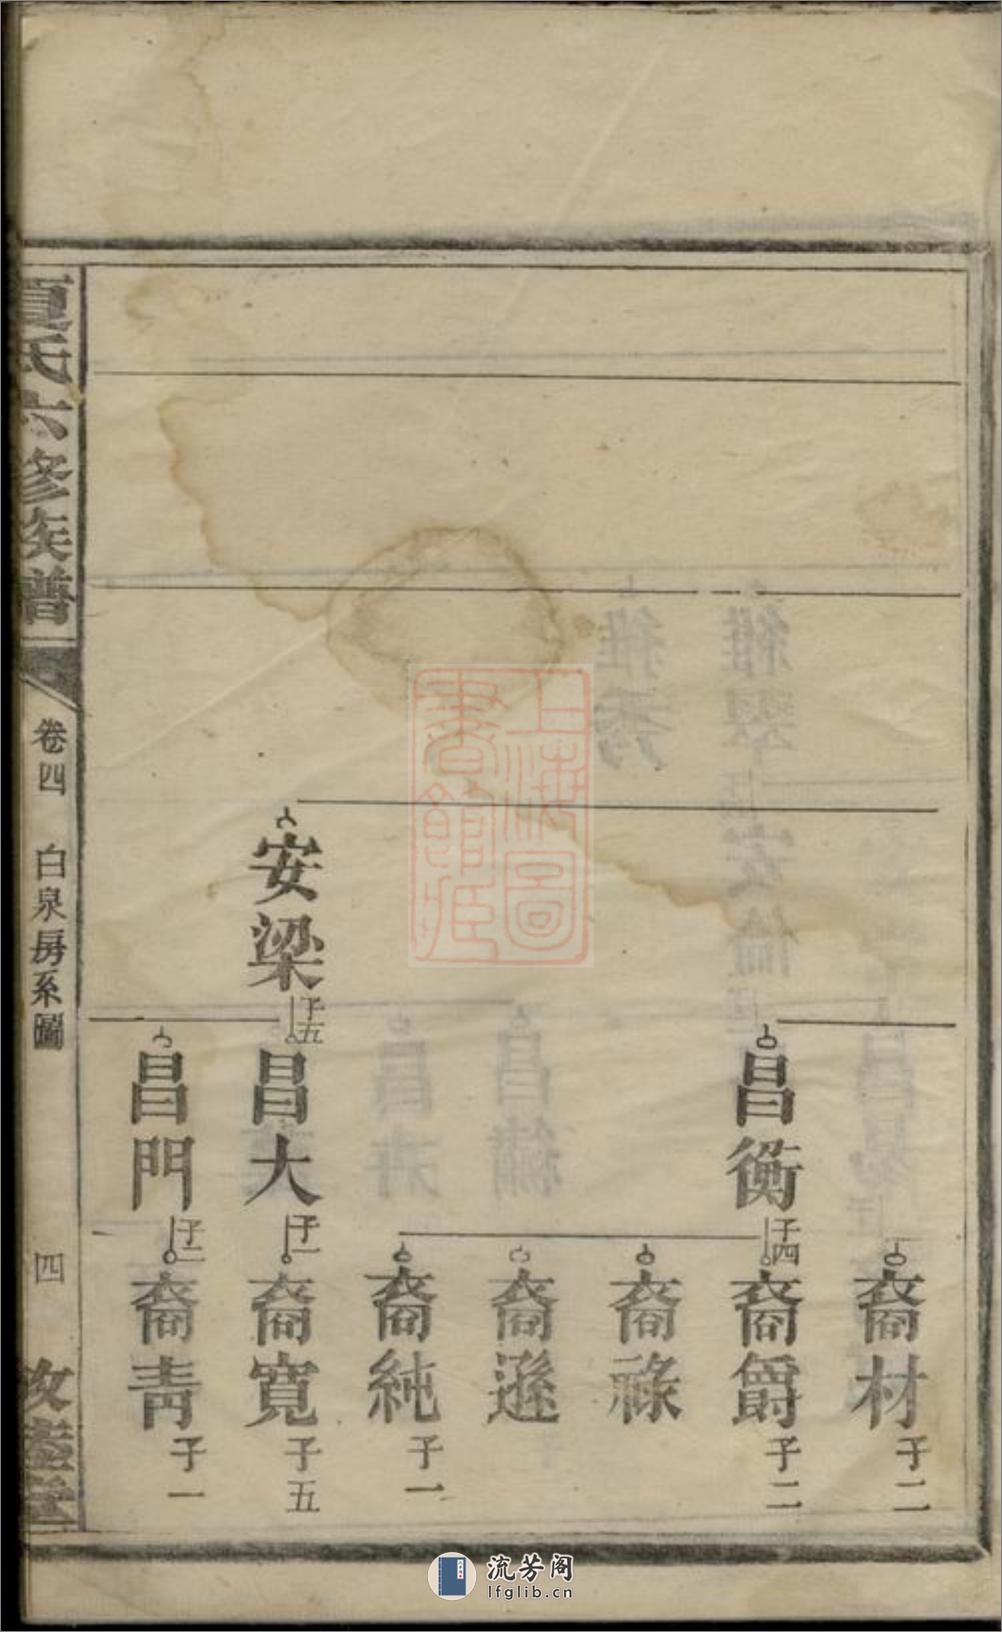 裔材
子二
昌衡
子四
裔爵
子二
裔祿
裔遜
裔純
子一
安梁
子五
昌大
子一
裔寬
子五
昌門
子二
裔靑
子一
氏六修族譜
卷四
白泉房系圖
四
敦睦堂
上海圖
書館藏
流芳阁
lfglib.cn